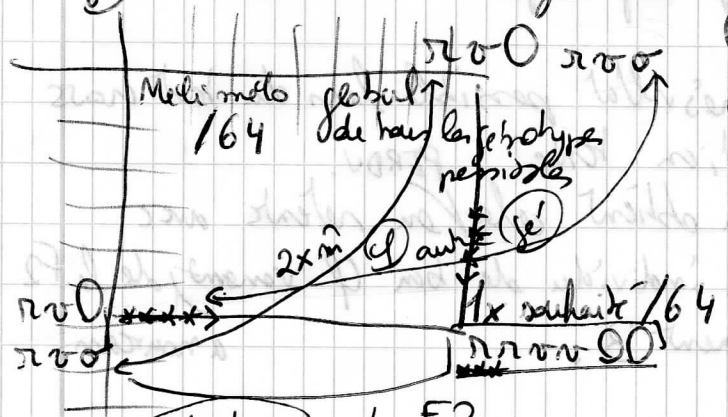 rvO rvo
Méli mélo global
/64 de tous les génotypes
possibles
2x m̂ autre
rvO 1x souhaité /64
rvo rrvvOO
F2